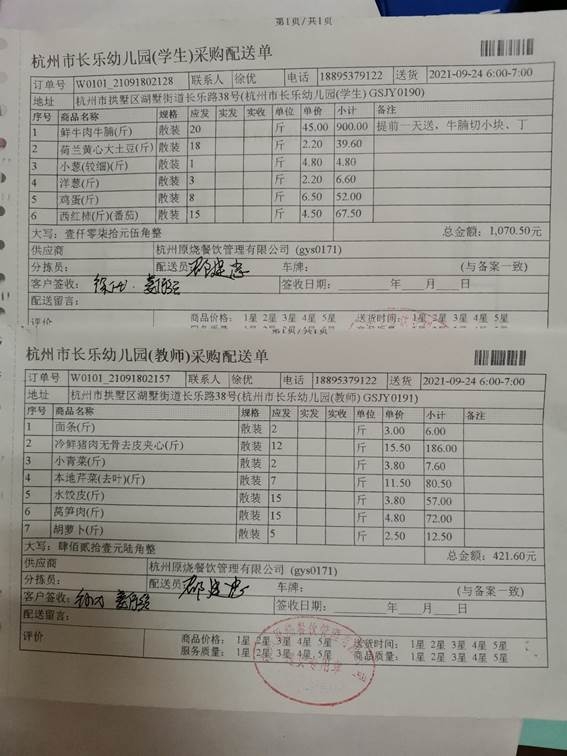 第1页/共1页
杭州市长乐幼儿园(学生)采购配送单
订单号 W0101_21091802128 联系人 徐优 电话 18895379122 送货 2021-09-24 6:00-7:00
地址 杭州市拱墅区湖墅街道长乐路38号(杭州市长乐幼儿园(学生) GSJY0190)
序号 商品名称 规格 应发 实发 实收 单位 单价 小计 备注
1 鲜牛肉牛腩(斤) 散装 20 斤 45.00 900.00 提前一天送、牛腩切小块、丁
2 荷兰黄心大土豆(斤) 散装 18 斤 2.20 39.60
3 小葱(较细)(斤) 散装 1 斤 4.80 4.80
4 洋葱(斤) 散装 3 斤 2.20 6.60
5 鸡蛋(斤) 散装 8 斤 6.50 52.00
6 西红柿(斤)(番茄) 散装 15 斤 4.50 67.50
大写：壹仟零柒拾元伍角整 总金额：1,070.50元
供应商 杭州原烧餐饮管理有限公司 (gys0171)
分拣员： 配送员 车牌： (与备案一致)
客户签收： 签收日期： 年 月 日
配送留言：
评价 商品价格： 1星 2星 3星 4星 5星 送货时间： 1星 2星 3星 4星 5星
第1页/共1页
杭州市长乐幼儿园(教师)采购配送单
订单号 W0101_21091802157 联系人 徐优 电话 18895379122 送货 2021-09-24 6:00-7:00
地址 杭州市拱墅区湖墅街道长乐路38号(杭州市长乐幼儿园(教师) GSJY0191)
序号 商品名称 规格 应发 实发 实收 单位 单价 小计 备注
1 面条(斤) 散装 2 斤 3.00 6.00
2 冷鲜猪肉无骨去皮夹心(斤) 散装 12 斤 15.50 186.00
3 小青菜(斤) 散装 2 斤 3.80 7.60
4 本地芹菜(去叶)(斤) 散装 7 斤 11.50 80.50
5 水饺皮(斤) 散装 15 斤 3.80 57.00
6 莴笋肉(斤) 散装 15 斤 4.80 72.00
7 胡萝卜(斤) 散装 5 斤 2.50 12.50
大写：肆佰贰拾壹元陆角整 总金额：421.60元
供应商 杭州原烧餐饮管理有限公司 (gys0171)
分拣员： 配送员 车牌： (与备案一致)
客户签收： 签收日期： 年 月 日
配送留言：
评价 商品价格： 1星 2星 3星 4星 5星 送货时间： 1星 2星 3星 4星 5星
服务质量： 1星 2星 3星 4星 5星 商品质量： 1星 2星 3星 4星 5星